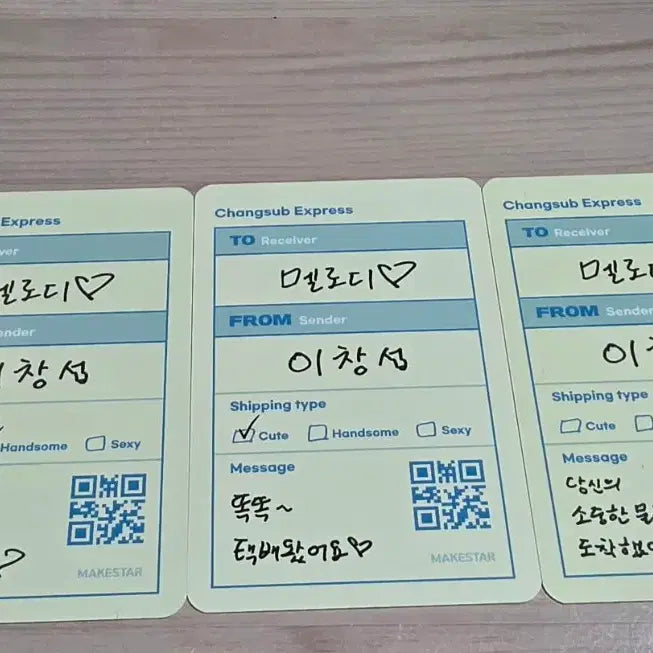 Express
멜로디♡
창섭
Handsome
Sexy
MAKESTAR
Changsub Express
TO Receiver
멜로디♡
FROM Sender
이창섭
Shipping type
Cute Handsome Sexy
Message
똑똑~
택배왔어요♡
MAKESTAR
Changsub Express
TO Receiver
멜로
FROM Sender
이
Shipping type
Cute
Message
당신의
소중한
도착했